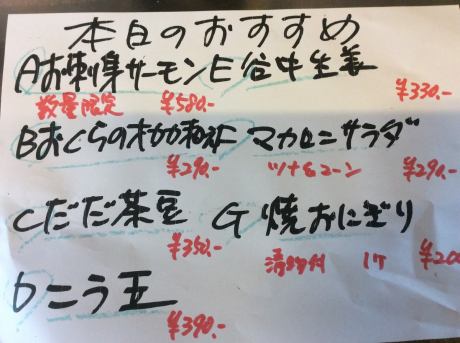 本日のおすすめ
Aお刺身サーモン E谷中生姜
数量限定 ¥580.- ¥330.-
Bおくらの梅和え F マカロニサラダ
¥290.- ツナ&コーン ¥290.-
Cだだ茶豆 G 焼おにぎり
¥350.- 漬物付 1ケ ¥200
Dニラ玉
¥390.-